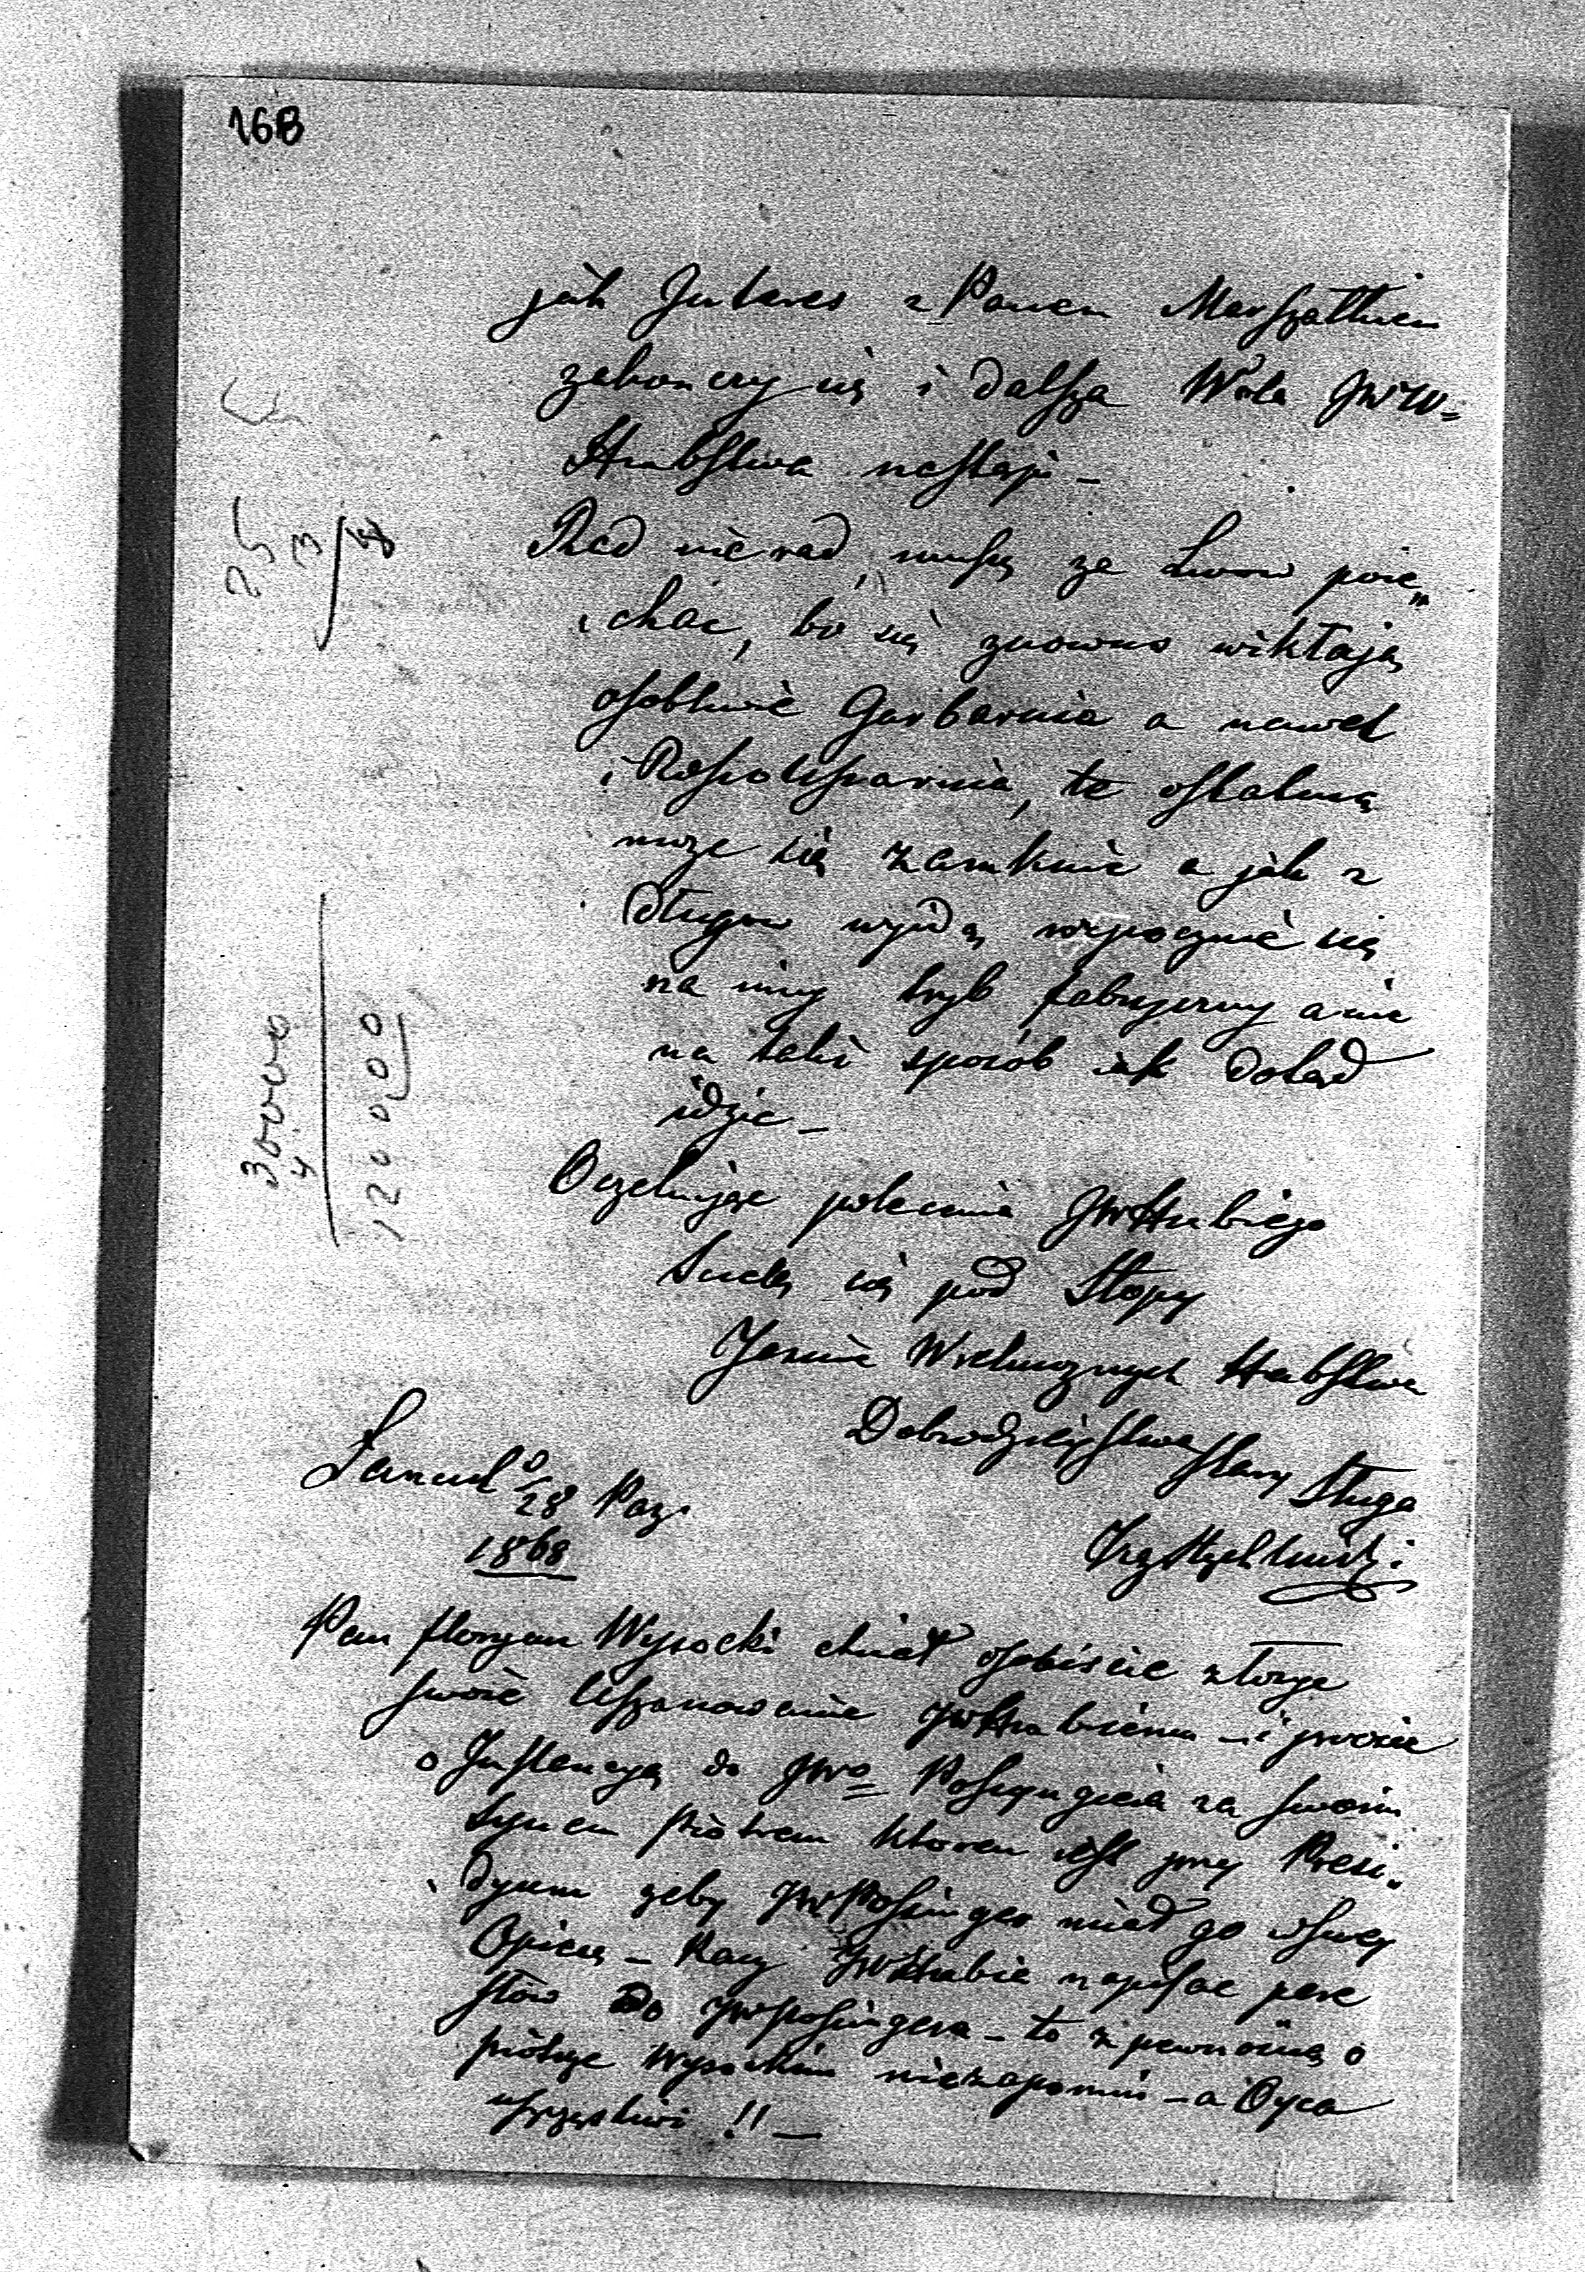 168
jak Interes z Panem Marszałkiem
zakonczy się i dalsza Wola JWW=
Hrabstwa nastąpi –
Rad nie rad, muszę ze Lwow poje„
chac, bo się znowus wikłają
osobliwie Garbarnia a nawet
i te ostatnią
moze się zamknie a jak z
długow wyidą rozpocznie się
na inny tryb fabryczny a nie
na taki sposób jak dotąd
idzie –
Oczekując polecenia JWHrabiego
Ścielę się pod Stopy
Jasnie Wielmoznych Hrabstwa
Dobrodziejstwa stary Sługa
Łancut d/28 Paz.
1868
Pan Floryan Wysocki chciał osobiscie złozyc
swoie Uszanowanie JWHrabiemu – i prosic
o Instancyą do JWo= za swoim
Synem Piotrem ktoren jest przy Presi„
dyum zeby JWPosinger miał go w swey
Opiece – Raczy JWHrabia napisac pare
słów do JWPosingera – to z pewnoscią o
Piotrze Wysockim niezapomni – a Oyca
uszczęsliwi !! –
25
3/8
30000
4
120000